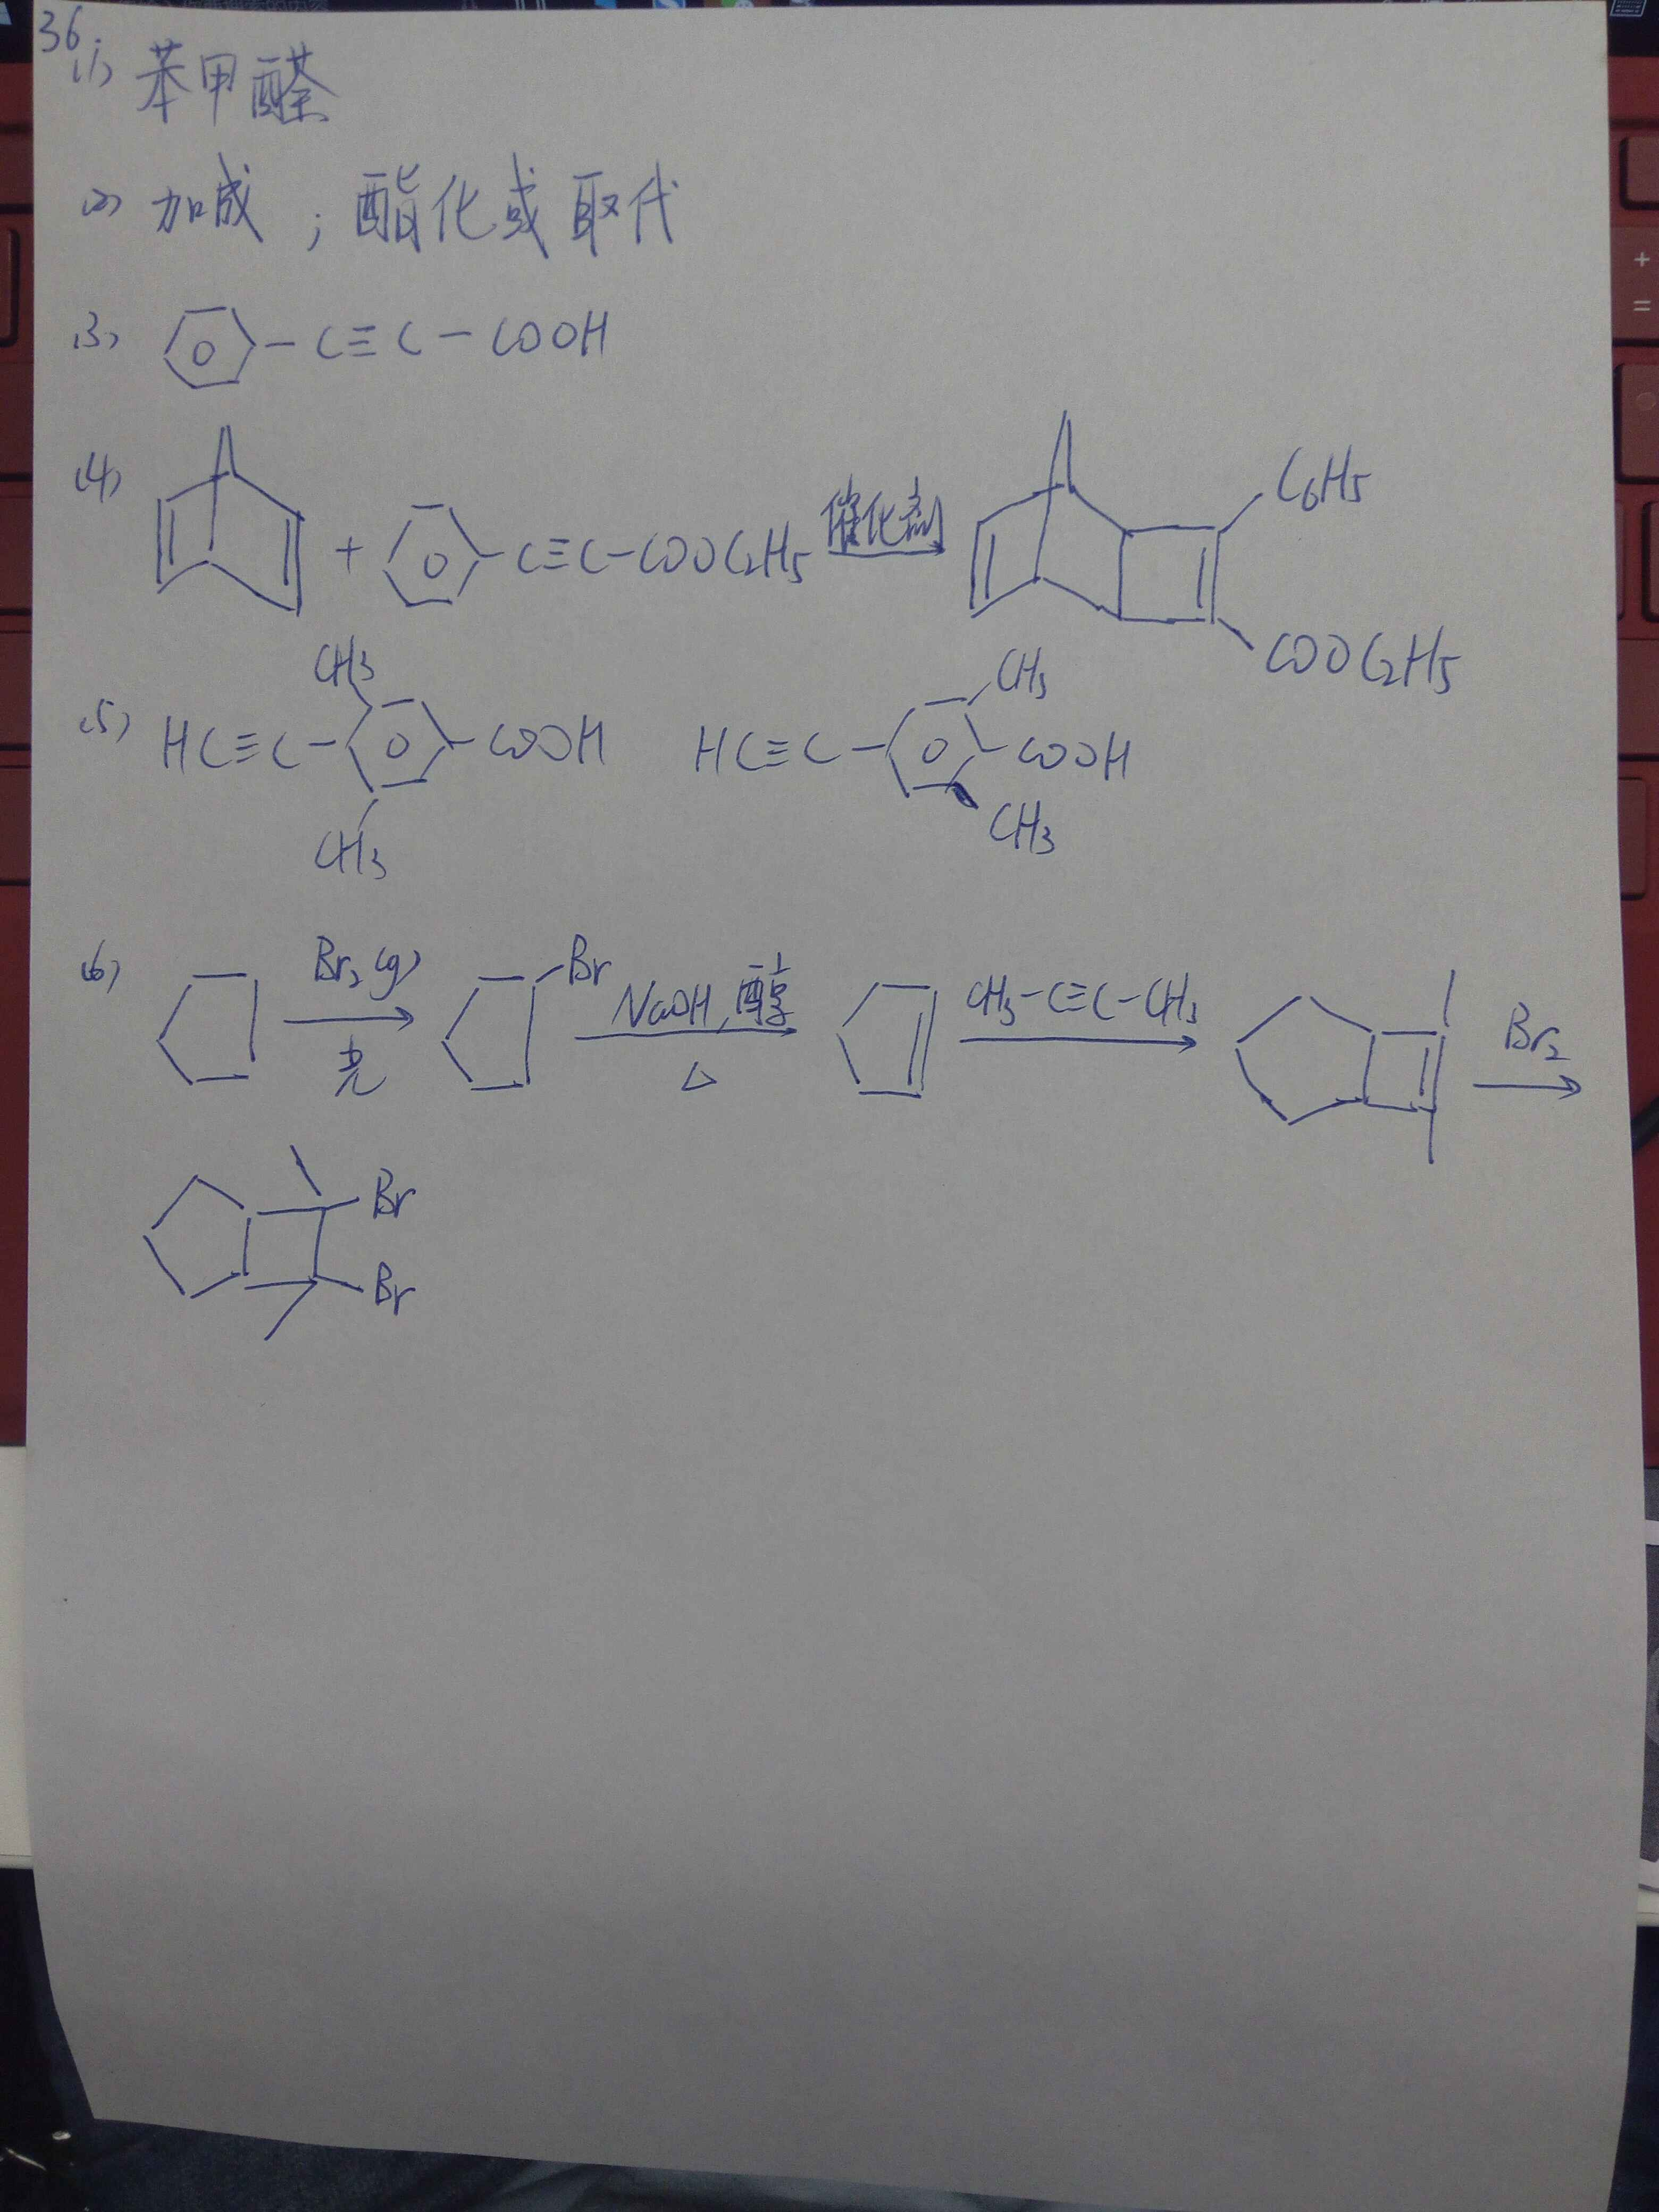 36.
(1) 苯甲醛
(2) 加成 ; 酯化或取代
(3) -C≡C-COOH
(4) + -C≡C-COOC2H5 催化剂 C6H5 COOC2H5
(5) HC≡C- CH3 CH3 -COOH HC≡C- CH3 COOH CH3
(6) Br2(g) 光 Br NaOH,醇 △ CH3-C≡C-CH3 Br2
Br
Br